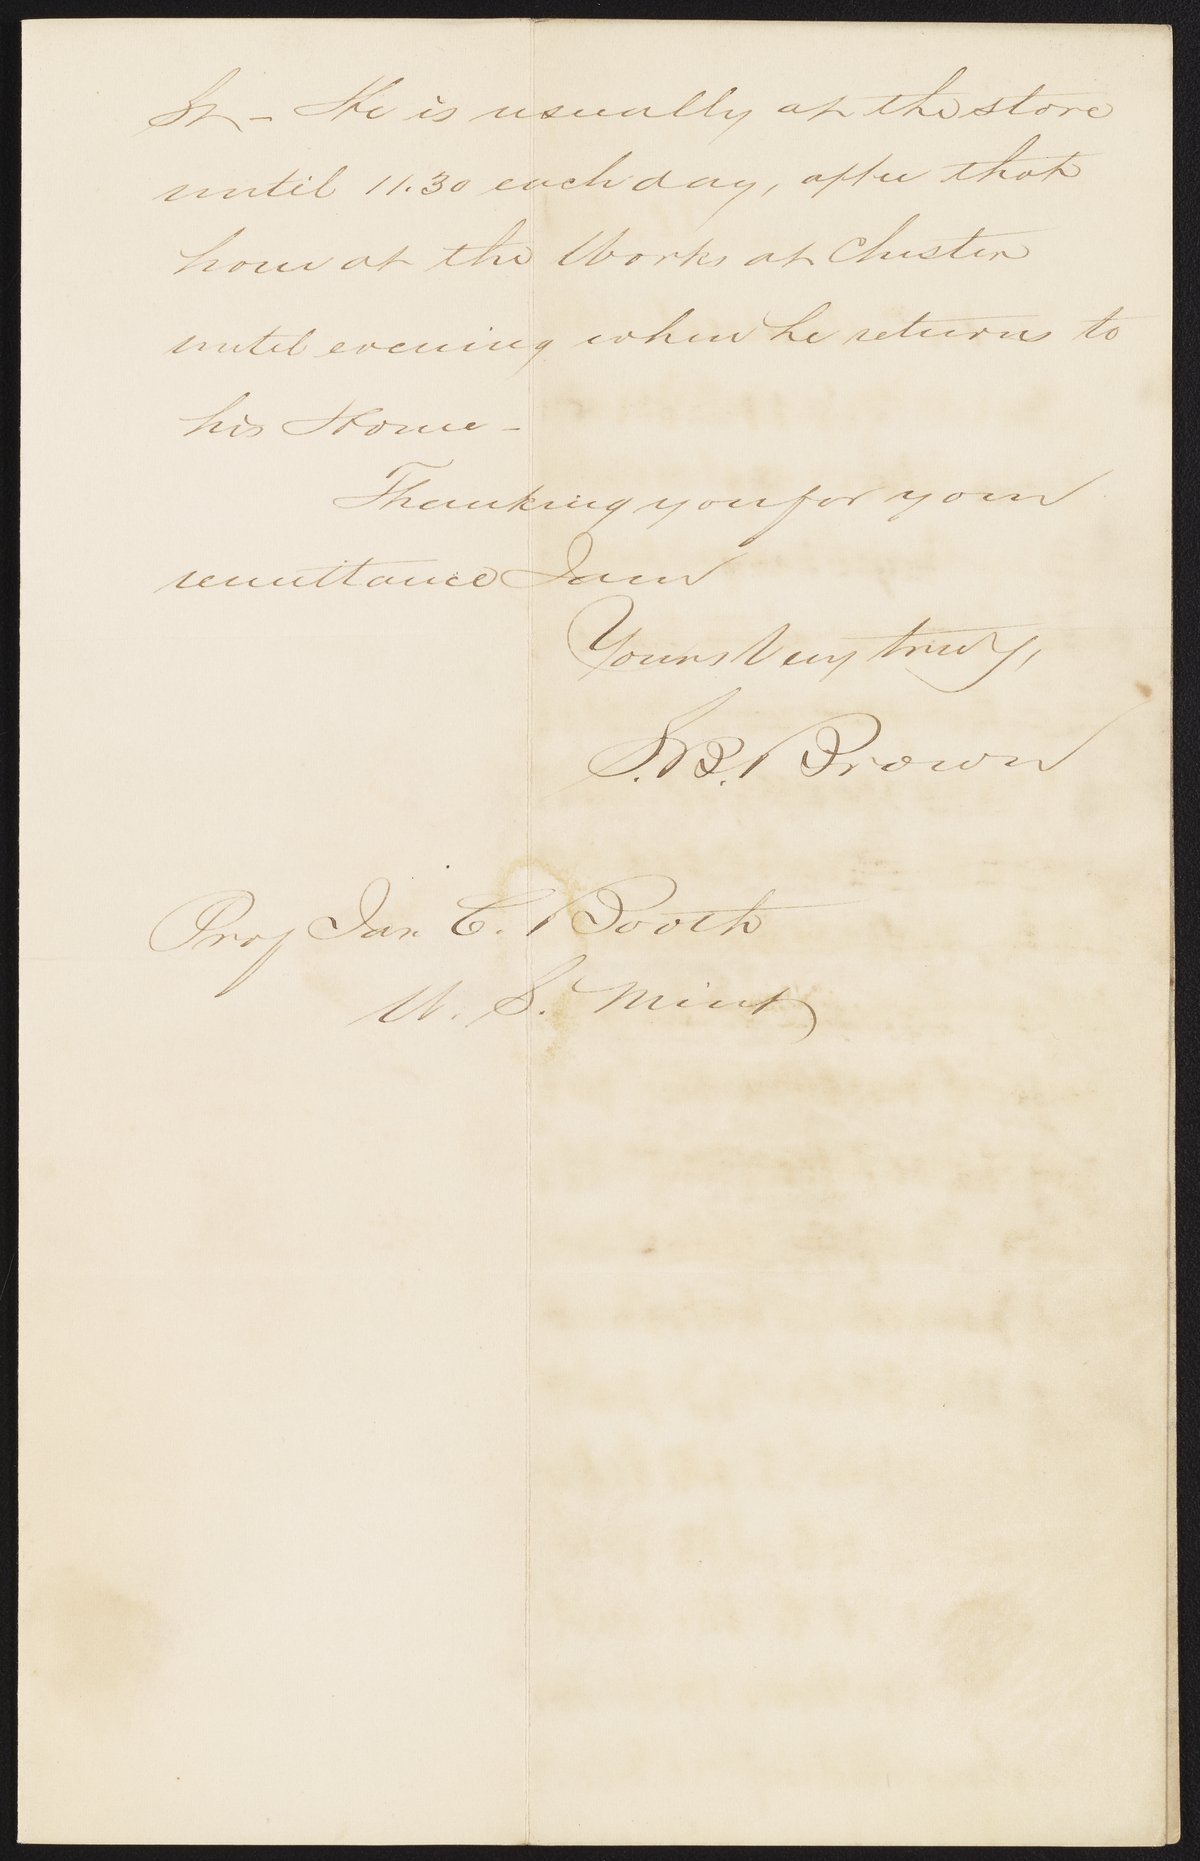 St - He is usually at the store
until 11.30 each day, after that
hour at the Works at Chester
until evening when he returns to
his Home -
Thanking you for your
remittance I am
Yours Very truly,
S. B. Brown
Prof Jas. C. Booth
U. S. Mint